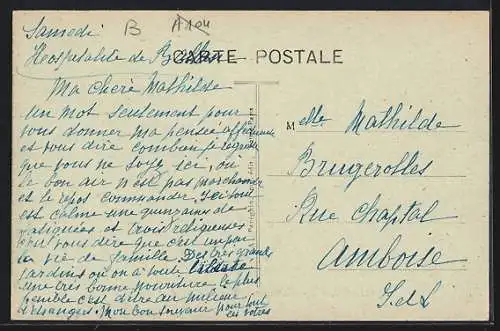 Samedi
B
Hospitalité de
CARTE POSTALE
Ma chère Mathilde
un mot seulement pour
vous donner ma pensée affectueuse
et vous dire combien je regrette
que vous ne soyez ici, où
le bon air n'est pas marchandé
et le repos commander. Ici tout
est calme une quinzaine de
fatiguées et trois religieuses
c'est vous dire que c'est un peu
la vie de famille. Des très grands
jardins où on a toute liberté
une très bonne nourriture le plus
pénible c'est d'être au milieu
d'étranges. Mon bon souvenir pour tous
les vôtres
Melle Mathilde
Brugerolles
Rue Chaptal
Amboise
I. et L